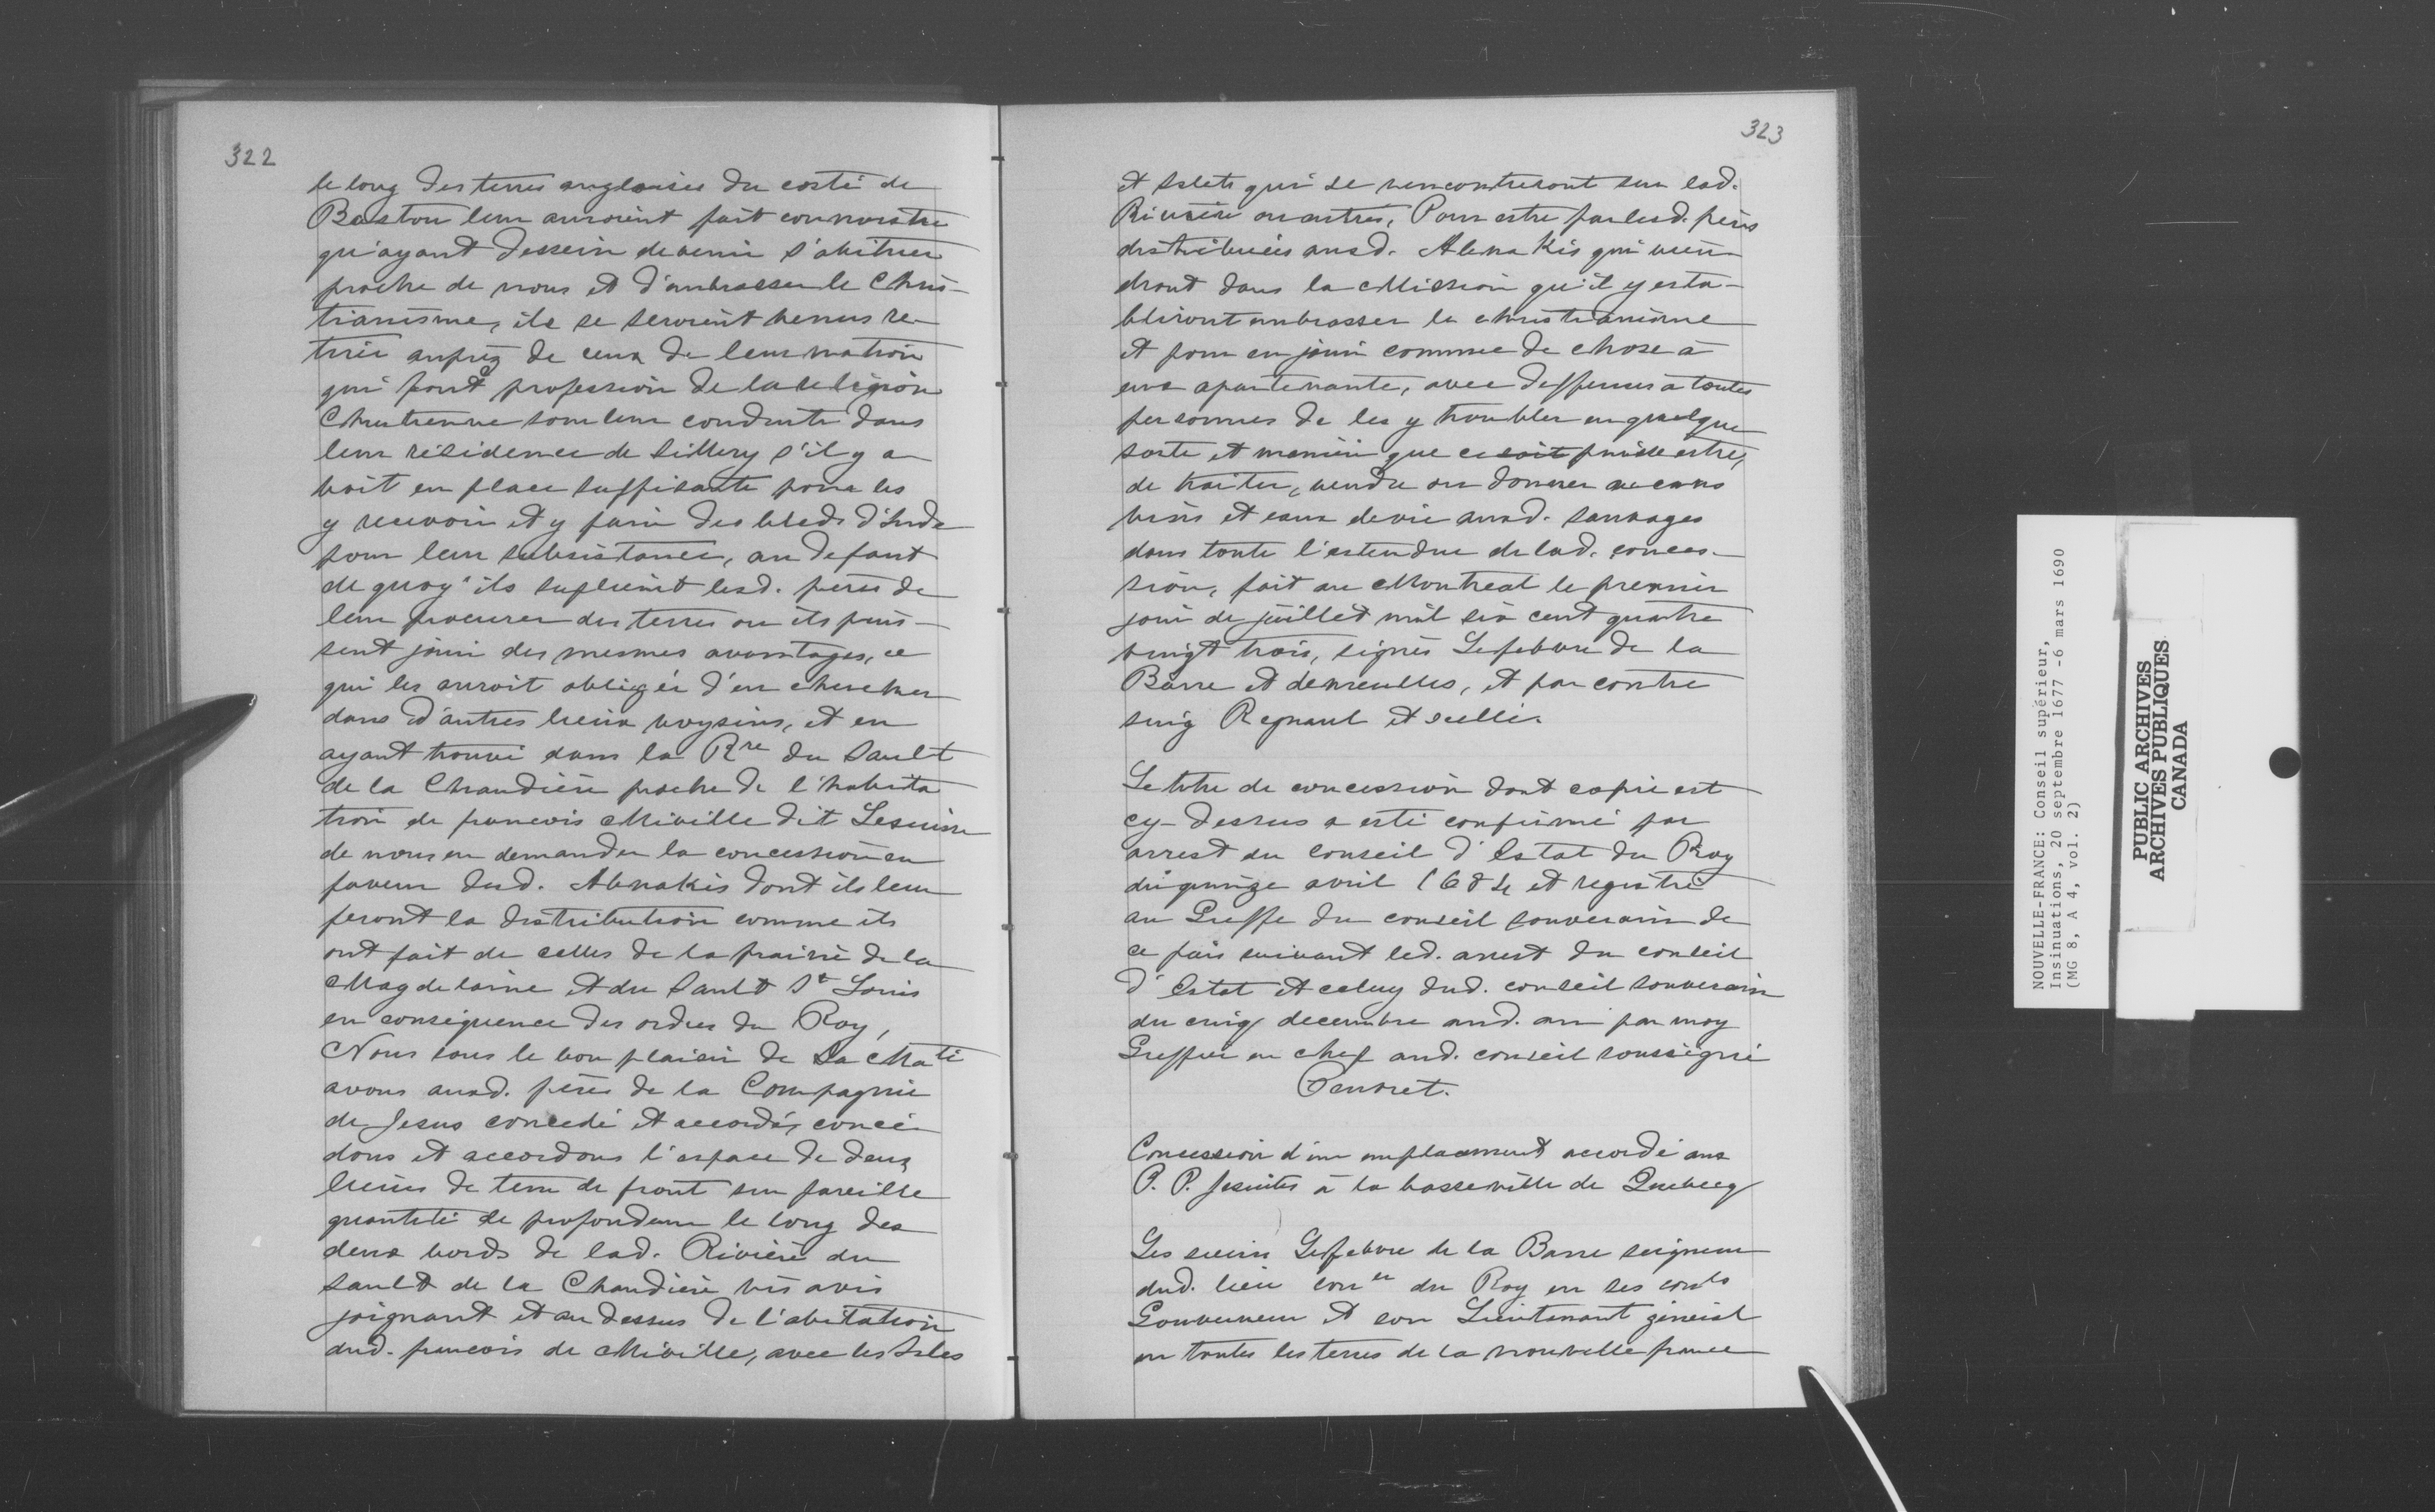 322
le long des terres angloises du costé de
Baston leur auroient fait connoistre
qu'ayant dessein de venir s'abituer
proche de nous et d'ambrasser le Chris-
tianisme, ils se seroient venus re-
tirer auprez de ceux de leur nation
qui font profession de la religion
Chrestienne sous leur conduite dans
leur résidence de Sillery s'il y a
voit en place suffisante pour les
y recevoir et y faire des bleds d'Inde
pour leur subsistance, au defaut
de quoy ils suplieient lesd. peres de
leur procurer des terres ou ils puis-
sent jouir des mesmes avantages, ce
qui les auroit obligéz d'en chercher
dans d'autres lieux voysins, et en
ayant trouvé dans la Rre du Sault
de la Chaudière proche de l'habita
tion de francois Miville dit Lesuisse
de nous en demander la concession en
faveur desd. Abnakis dont ils leur
feront la distribution comme ils
ont fait de celles de la prairie de la
Magdelaine et du Sault St Louis
en conséquence des ordres du Roy,
Nous sous le bon plaisir de Sa Maté
avons ausd. pères de la Compagnie
de Jesus concedé et accordé, concé
dons et accordons l'espace de deux
lieües de terre de front sur pareille
quantité de profondeur le long des
deux bords de lad. Rivière du
sault de la Chaudière vis avis
joignant et au dessus de l'abitation
dud. francois de Miville, avec les Isles
323
et Islets qui se rencontreront sur lad.
Rivière ou autres, Pour estre par lesd. pères
distribuées ausd. Abenakis qui vien
dront dans la Mission qu'il y esta-
bliront embrasser le christianisme
et pour en jouir comme de chose à
eux apartenante, avec deffenses à toutes
personnes de les y troubler en quelque
sorte et manière que ce soit puisse estre,
de traiter, vendre ou donner aucuns
vins et eaux de vie ausd. sauvages
dans toute l'estendue de lad. conces-
sion, fait au Montreal le premier
jour de juillet mil six cent quatre
vingt trois, signés Lefebvre de la
Barre et demeulles, et par contre
seing Regnaul et scellé.
Le titre de concession dont copie est
cy-dessus a esté confirmé par
arrest du conseil d'Estat du Roy
du quinze avril 1684 et registré
au Greffe du conseil souverain de
ce païs suivant led. arrest du conseil
d'Estat et celuy dud. conseil souverain
du cinq decembre aud. an par moy
Greffier en chef aud. conseil soussigné
Peuvret.
Concession d'un emplacement accordé aux
P. P. Jesuites à la basseville de Quebecq
Les sieurs Lefebvre de la Barre seigneur
dud. lieu coner du Roy en ses conls
Gouverneur et son Lieutenant général
en toutes les terres de la nouvelle france
NOUVELLE-FRANCE: Conseil supérieur,
Insinuations, 20 septembre 1677 -6 mars 1690
(MG 8, A 4, vol. 2)
PUBLIC ARCHIVES
ARCHIVES PUBLIQUES
CANADA